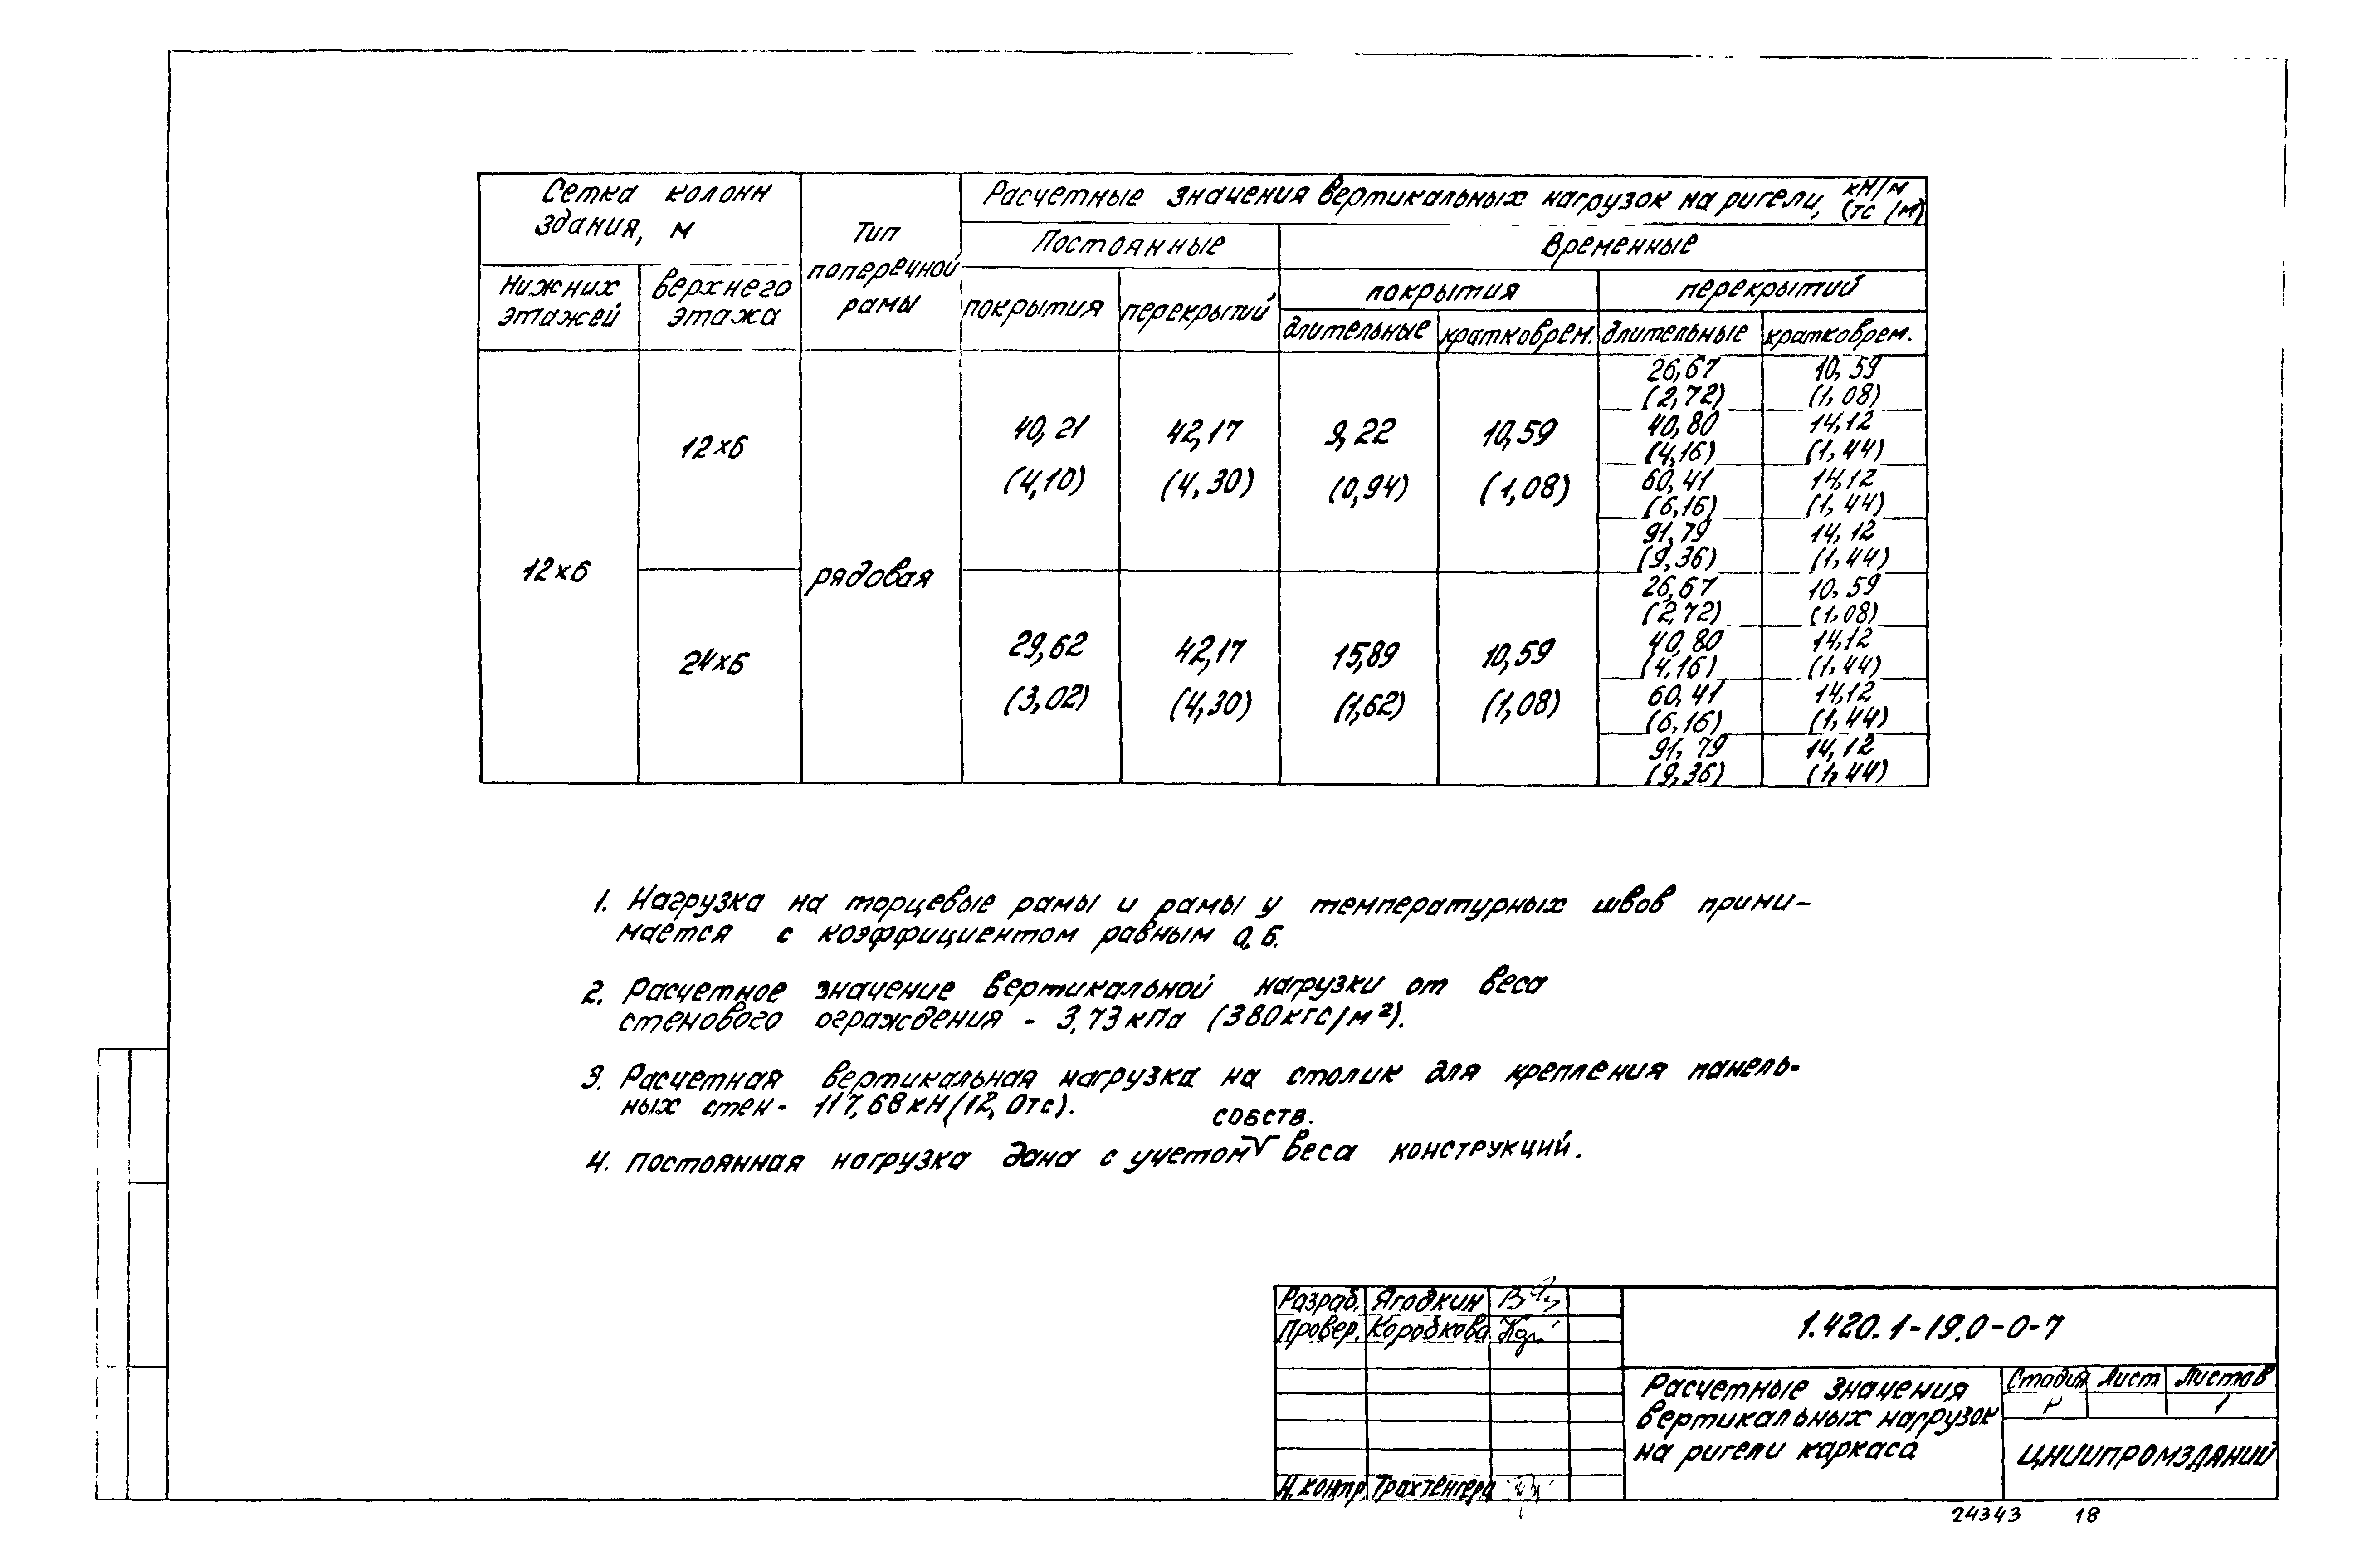 Сетка колонн
здания, м
Тип
поперечной
рамы
Расчетные значения вертикальных нагрузок на ригели, кН/м
(тс/м)
Постоянные
Временные
Нижних
этажей
верхнего
этажа
покрытия
перекрытий
покрытия
перекрытий
длительные
кратковрем.
длительные
кратковрем.
12×6
12×6
рядовая
40,21
(4,10)
42,17
(4,30)
9,22
(0,94)
10,59
(1,08)
26,67 10,59
(2,72) (1,08)
40,80 14,12
(4,16) (1,44)
60,41 14,12
(6,16) (1,44)
91,79 14,12
(9,36) (1,44)
24×6
29,62
(3,02)
42,17
(4,30)
15,89
(1,62)
10,59
(1,08)
26,67 10,59
(2,72) (1,08)
40,80 14,12
(4,16) (1,44)
60,41 14,12
(6,16) (1,44)
91,79 14,12
(9,36) (1,44)
1. Нагрузка на торцевые рамы и рамы у температурных швов прини-
мается с коэффициентом равным 0,6.
2. Расчетное значение вертикальной нагрузки от веса
стенового ограждения - 3,73 кПа (380кгс/м²).
3. Расчетная вертикальная нагрузка на столик для крепления панель-
ных стен - 117,68 кН (12,0тс).
4. Постоянная нагрузка дана с учетом собств. веса конструкций.
Разраб. Ягодкин
Провер. Коробкова
Н.контр. Трахтенгерц
1.420.1-19.0-0-7
Расчетные значения
вертикальных нагрузок
на ригели каркаса
Стадия Лист Листов
Р 1
ЦНИИПРОМЗДАНИЙ
24343 18